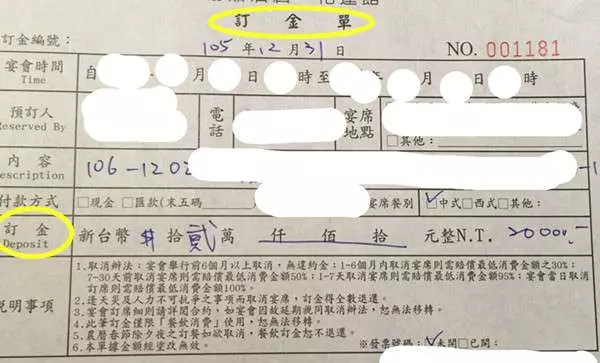 訂金單
訂金編號：
105年12月31日
NO. 001181
宴會時間 自 月 日 時至 年 月 日 時
Time
預訂人 電話 宴席地點
Reserved By
□其他：
內容 106-1202
Description
付款方式 □現金 □匯款(末五碼 宴席餐別 ☑中式□西式□其他：
訂金 新台幣 $ 拾 貳 萬 仟 佰 拾 元整N.T. 20000.-
Deposit
說明事項
1.取消辦法：宴會舉行前6個月以上取消，無違約金；1-6個月內取消宴席則需賠償最低消費金額之30%；
7-30天前取消宴席則需賠償最低消費金額50%；1-7天取消宴席則需賠償最低消費金額95%；宴會當日取消
訂席則需賠償最低消費金額100%。
2.逢天災及人力不可抗爭之事項而取消宴席，訂金得全數退還。
3.宴會訂席細則請詳閱合約，如宴會因故延期視同取消辦法，恕無法移轉。
4.此筆訂金僅限「餐飲消費」使用，恕無法移轉。
5.農曆春節除夕夜之訂餐如欲取消，餐飲訂金恕不退還。
6.本單據金額經塗改無效。
※發票號碼：☑未開□已開：